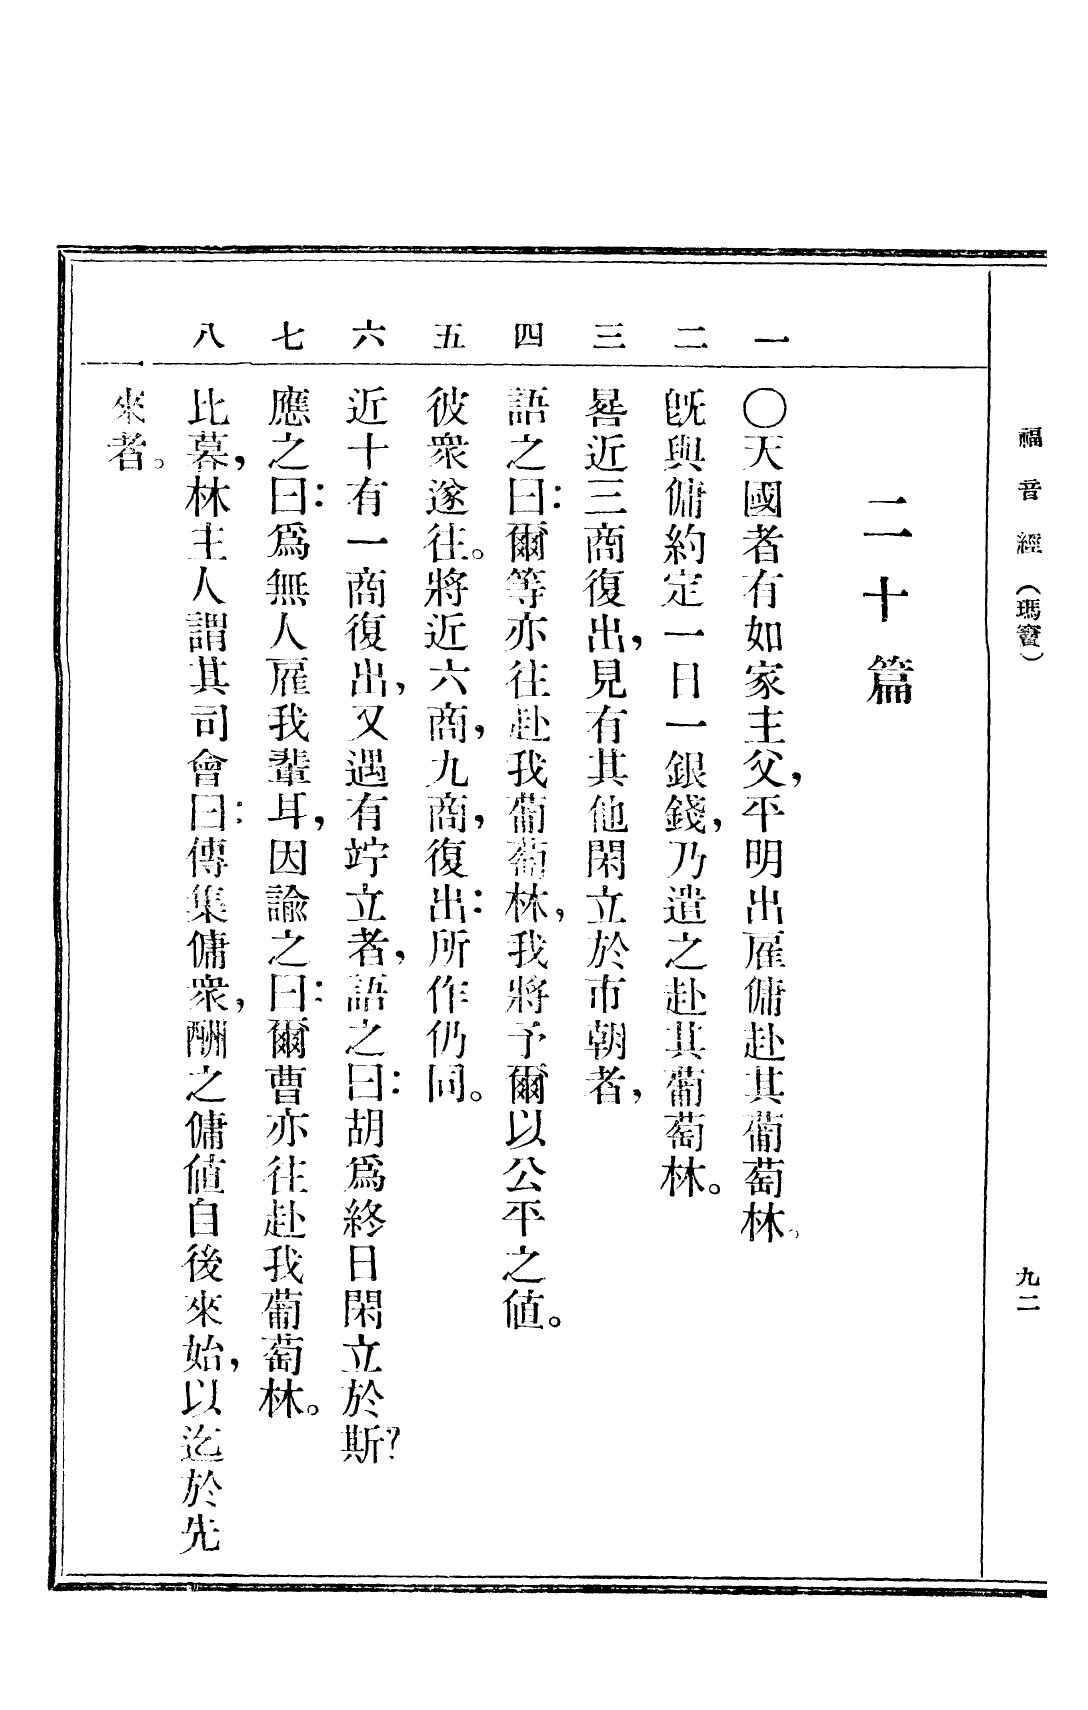 福音經（瑪竇）
九二
二十篇
一
〇天國者有如家主父，平明出雇傭赴其葡萄林。
二
旣與傭約定一日一銀錢，乃遣之赴其葡萄林。
三
晷近三商復出，見有其他閑立於市朝者，
四
語之曰：爾等亦往赴我葡萄林，我將予爾以公平之値。
五
彼衆遂往。將近六商，九商，復出：所作仍同。
六
近十有一商復出，又遇有竚立者，語之曰：胡爲終日閑立於斯？
七
應之曰：爲無人雇我輩耳，因諭之曰：爾曹亦往赴我葡萄林。
八
比暮，林主人謂其司會曰：傳集傭衆，酬之傭値自後來始，以迄於先
來者。